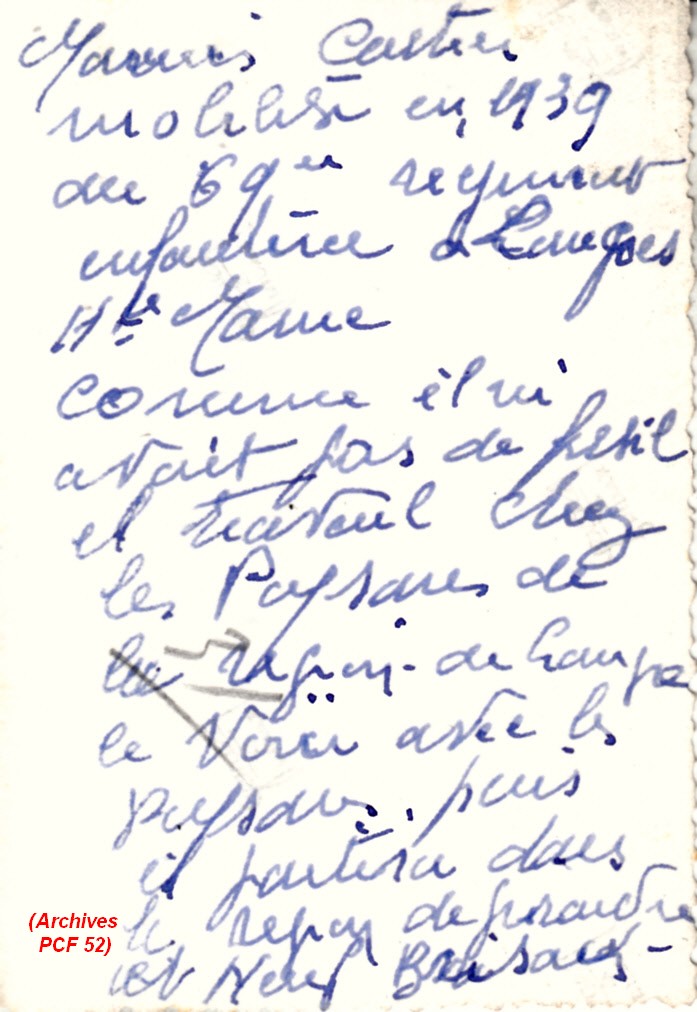 Marius Cartier
mobilisé en 1939
au 69em regiment
infanterie a Langres
Hte Marne
comme il ni
avait pas de fusil
il travail chez
les Paysans de
la region de Langres
le Voici avec les
Paysans, puis
il partira dans
la region de
et Neuf Brisach -
(Archives
PCF 52)